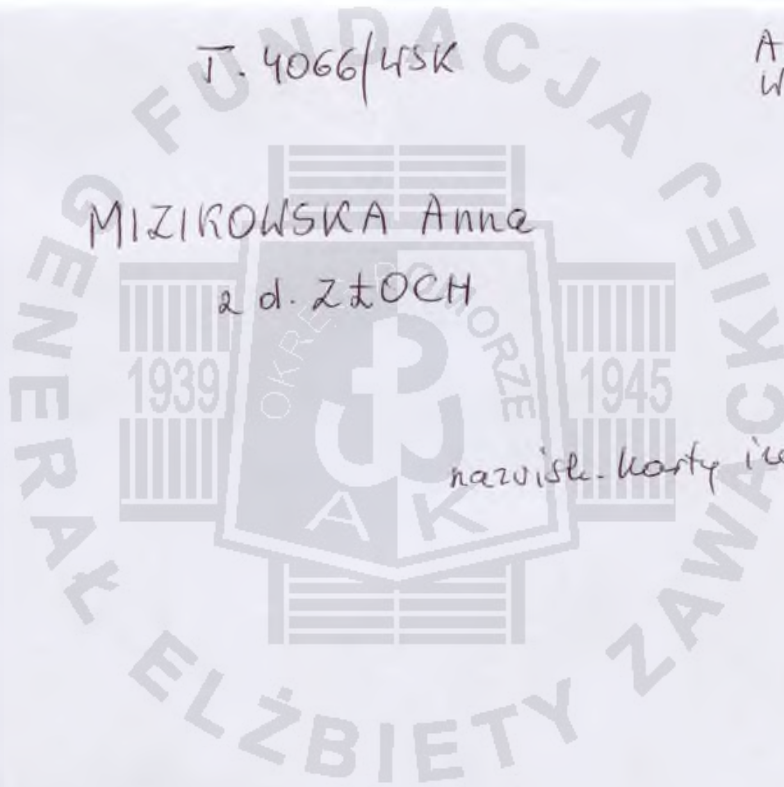 T. 4066/WSK
A
W
MIZIKOWSKA Anna
z d. ZŁOCH
nazwisk. karty
FUNDACJA GENERAŁ ELŻBIETY ZAWACKIEJ
OKRĘG POMORZE
1939 1945
AK